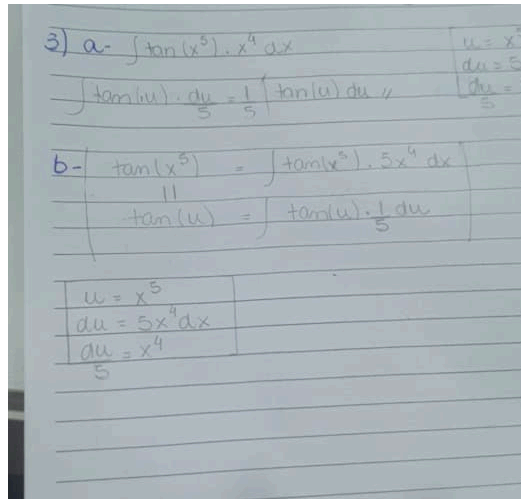 3) a- ∫ tan(x⁵) . x⁴ dx
u = x
du = 5
du/5 =
∫ tan(u) . du/5 = 1/5 ∫ tan(u) du //
b- tan(x⁵) = ∫ tan(x⁵) . 5x⁴ dx
||
tan(u) = ∫ tan(u) . 1/5 du
u = x⁵
du = 5x⁴dx
du/5 = x⁴